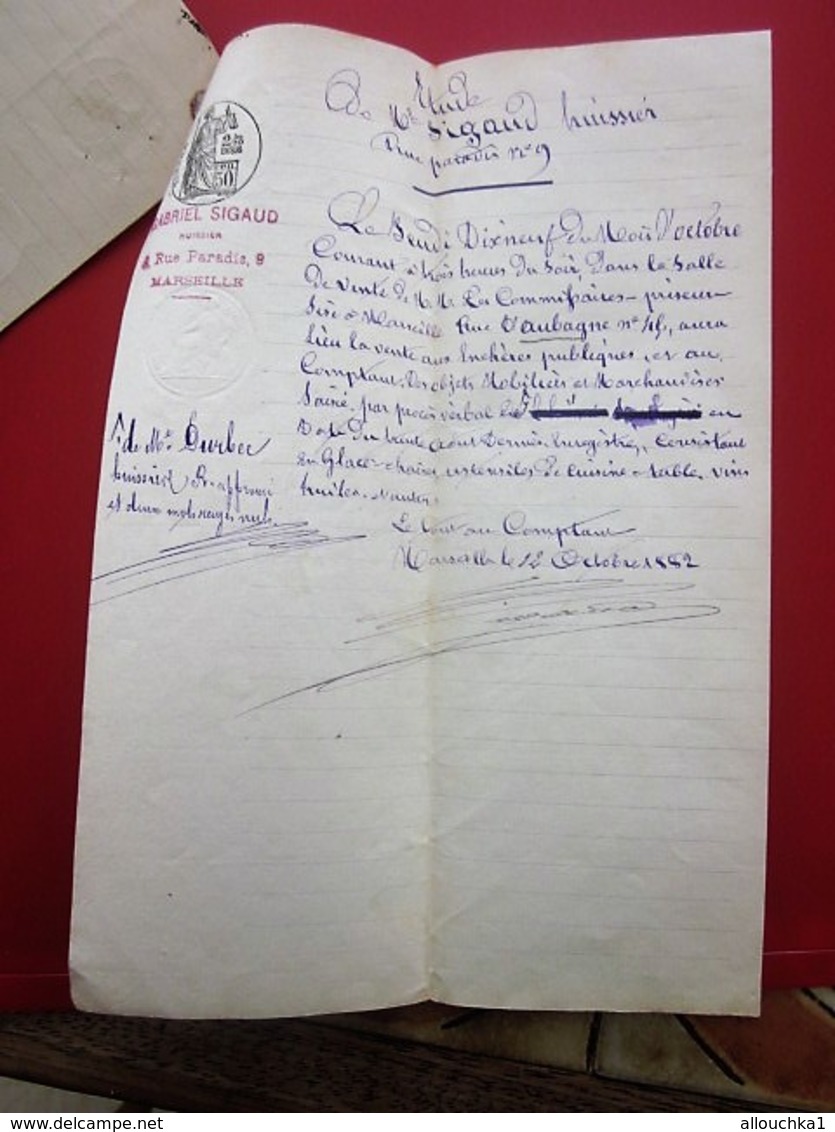 Etude
De Me Sigaud huissier
Rue paradis n° 9
50
GABRIEL SIGAUD
HUISSIER
Rue Paradis, 9
MARSEILLE
Le Jeudi Dixneuf du Mois d'octobre
Courant à trois heures du Soir, Dans la Salle
De vente de M.M. les Commissaires-priseurs
Sise à Marseille Rue d'aubagne n°, aura
Lieu la vente aux Enchères publiques, et au
Comptant, Des objets Mobiliers et Marchandises
Saisis, par procès verbal en
Date du trente août Dernier Enregistré, Consistant
en Glace chaises, ustensiles de cuisine table, vins
huiles
Le tout au Comptant
Marseille le 12 Octobre 1882
de Me
huissier approuvé
et deux mots rayés nuls
delcampe.net
allouchka1